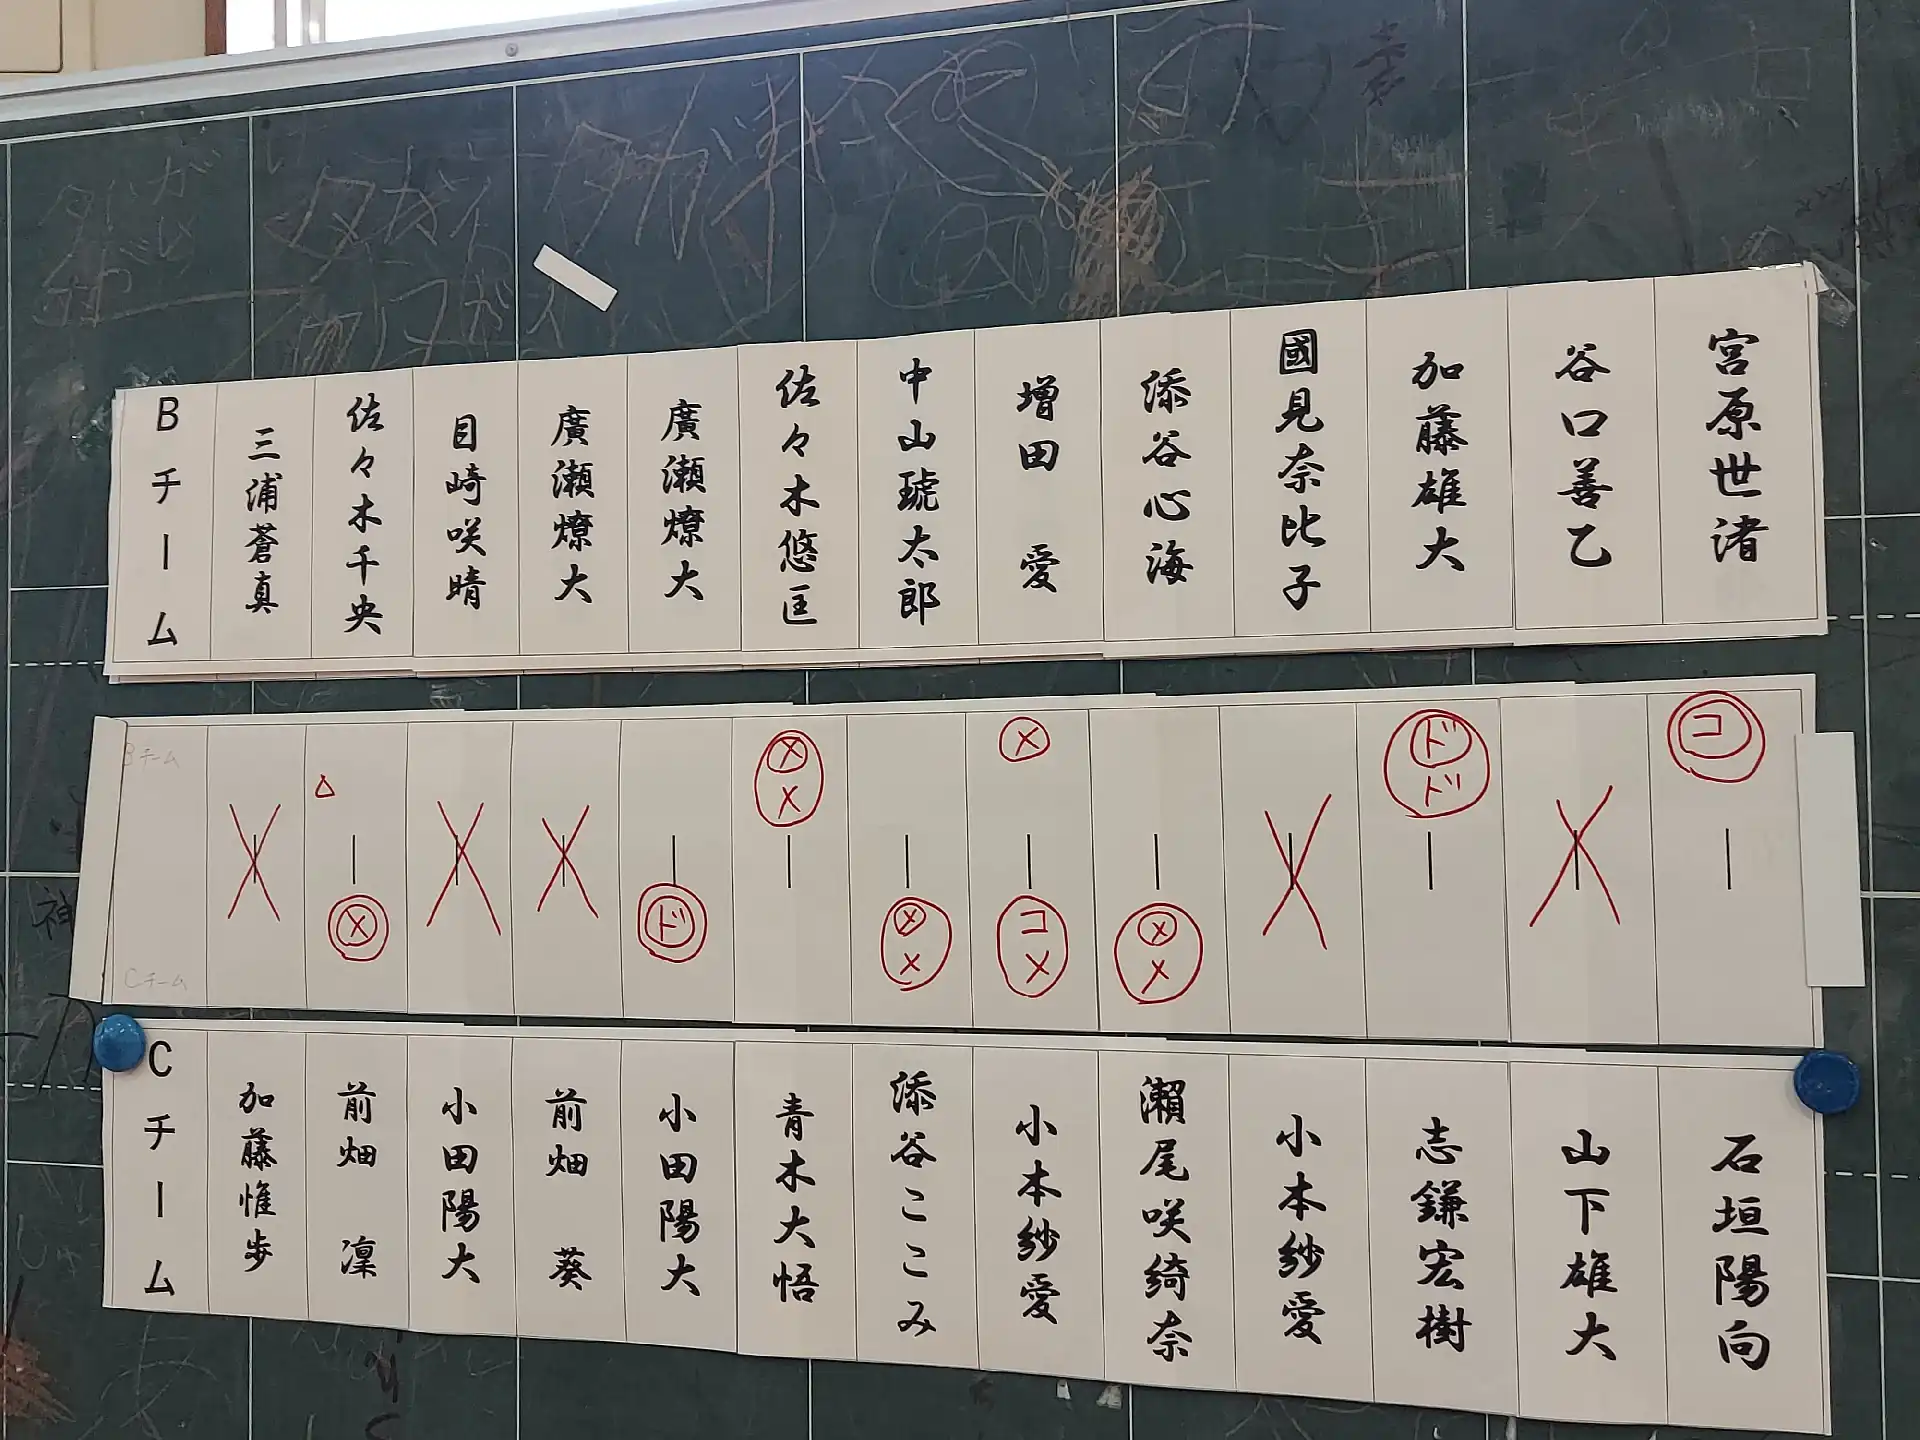 宮原世渚
谷口善乙
加藤雄大
國見奈比子
添谷心海
増田 愛
中山琥太郎
佐々木悠匡
廣瀬燎大
廣瀬燎大
目崎咲晴
佐々木千央
三浦蒼真
Bチーム
コ
ド
ド
メ
メ
メ
ド
Bチーム
メ
メ
コ
メ
メ
メ
メ
Cチーム
石垣陽向
山下雄大
志鎌宏樹
小本紗愛
瀬尾咲綺奈
小本紗愛
添谷ここみ
青木大悟
小田陽大
前畑 葵
小田陽大
前畑 凜
加藤惟歩
Cチーム